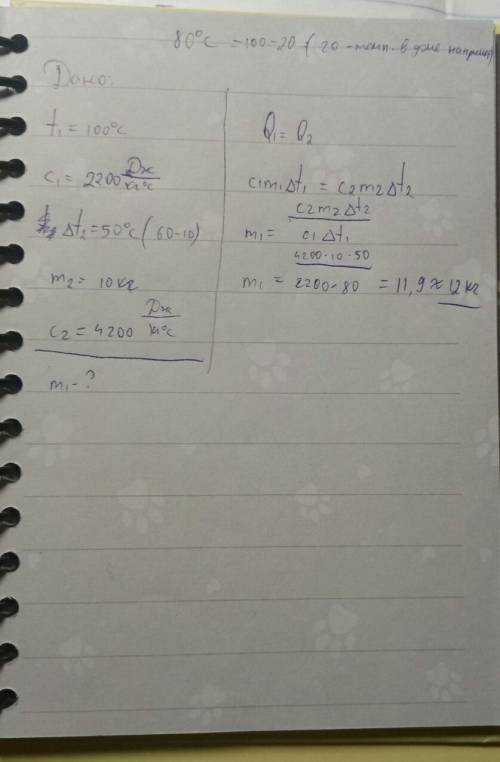 80°C = 100-20 (20 - темп. в доме например)
Дано:
t₁ = 100°C
c₁ = 2200 Дж/кг°C
Δt₂ = 50°C (60-10)
m₂ = 10 кг
c₂ = 4200 Дж/кг°C
m₁ - ?
Q₁ = Q₂
c₁m₁Δt₁ = c₂m₂Δt₂
m₁ = c₂m₂Δt₂ / c₁Δt₁
m₁ = 4200·10·50 / 2200·80 = 11,9 ≈ 12 кг